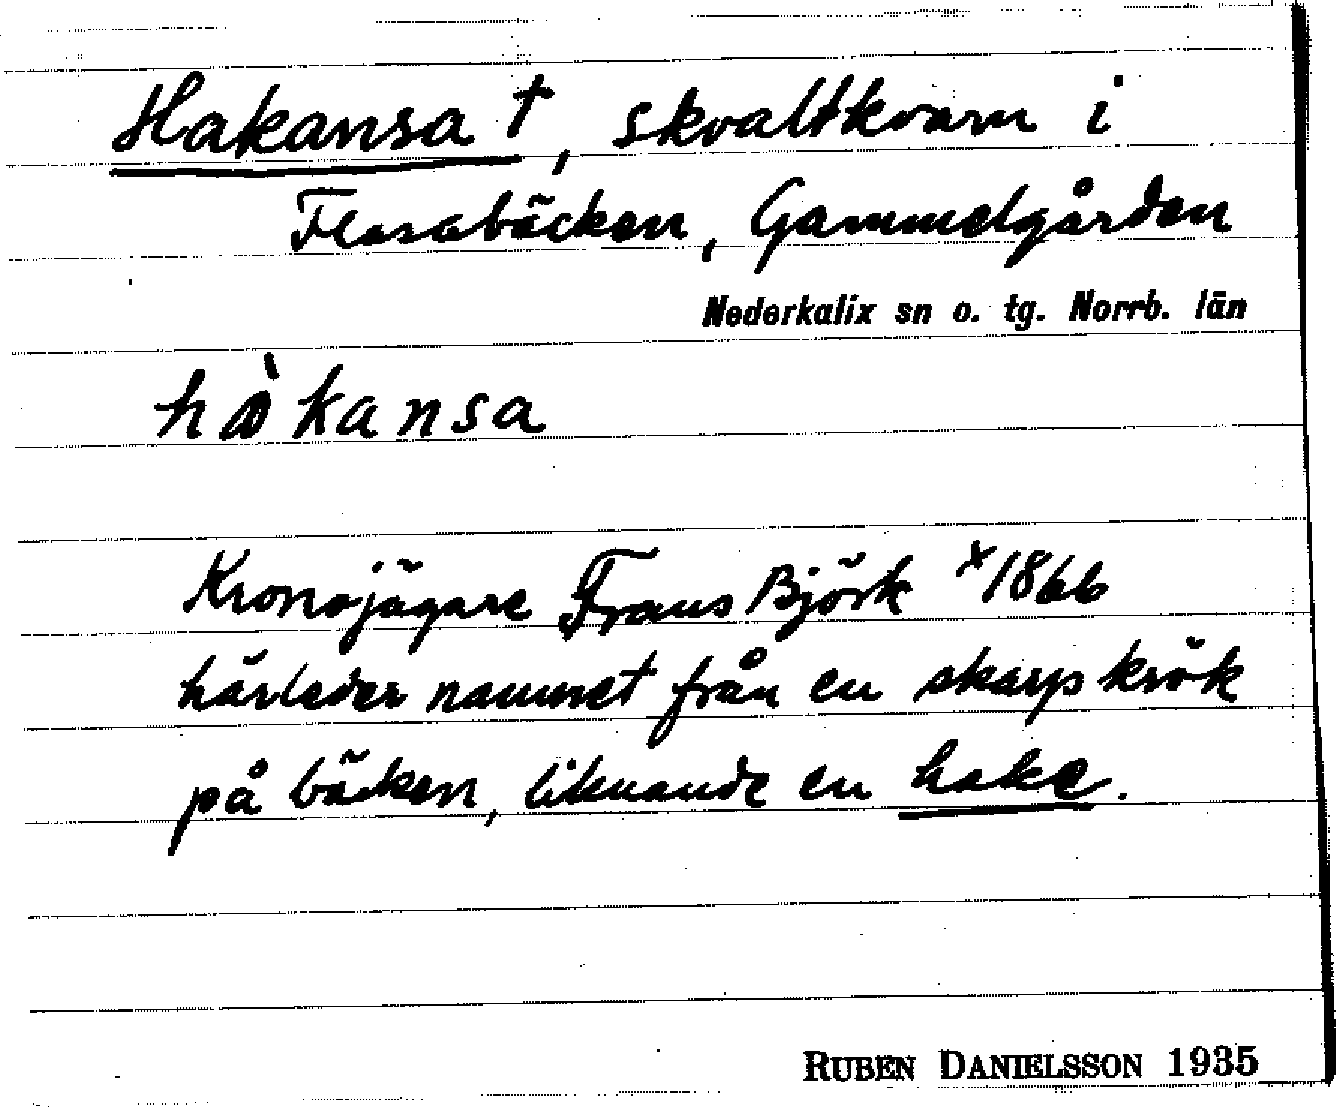 Hakansa †, skvaltkvarn i
Flasabäcken, Gammelgården
Nederkalix sn o. tg. Norrb. län
hàkansa
Kronojägare Frans Björk x1866
härleder namnet från en skarp krök
på bäcken, liknande en hake.
RUBEN DANIELSSON 1935